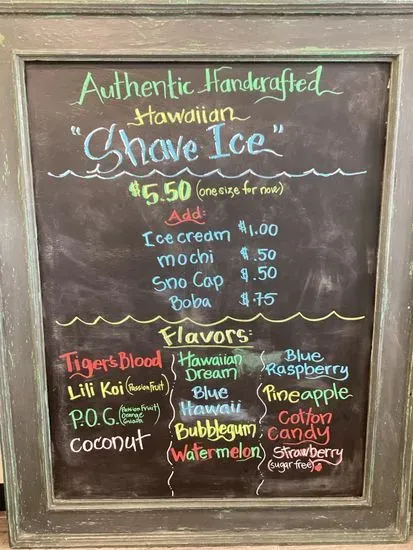 Authentic Handcrafted
Hawaiian
"Shave Ice"
$5.50 (one size for now)
Add:
Ice cream $1.00
mochi $.50
Sno Cap $.50
Boba $.75
Flavors:
Tiger's Blood
Lili Koi (Passion Fruit)
P.O.G. (Passion Fruit/
Orange
Guava)
Coconut
Hawaiian
Dream
Blue
Hawaii
Bubblegum
Watermelon
Blue
Raspberry
Pineapple
Cotton
Candy
Strawberry
(sugar free)